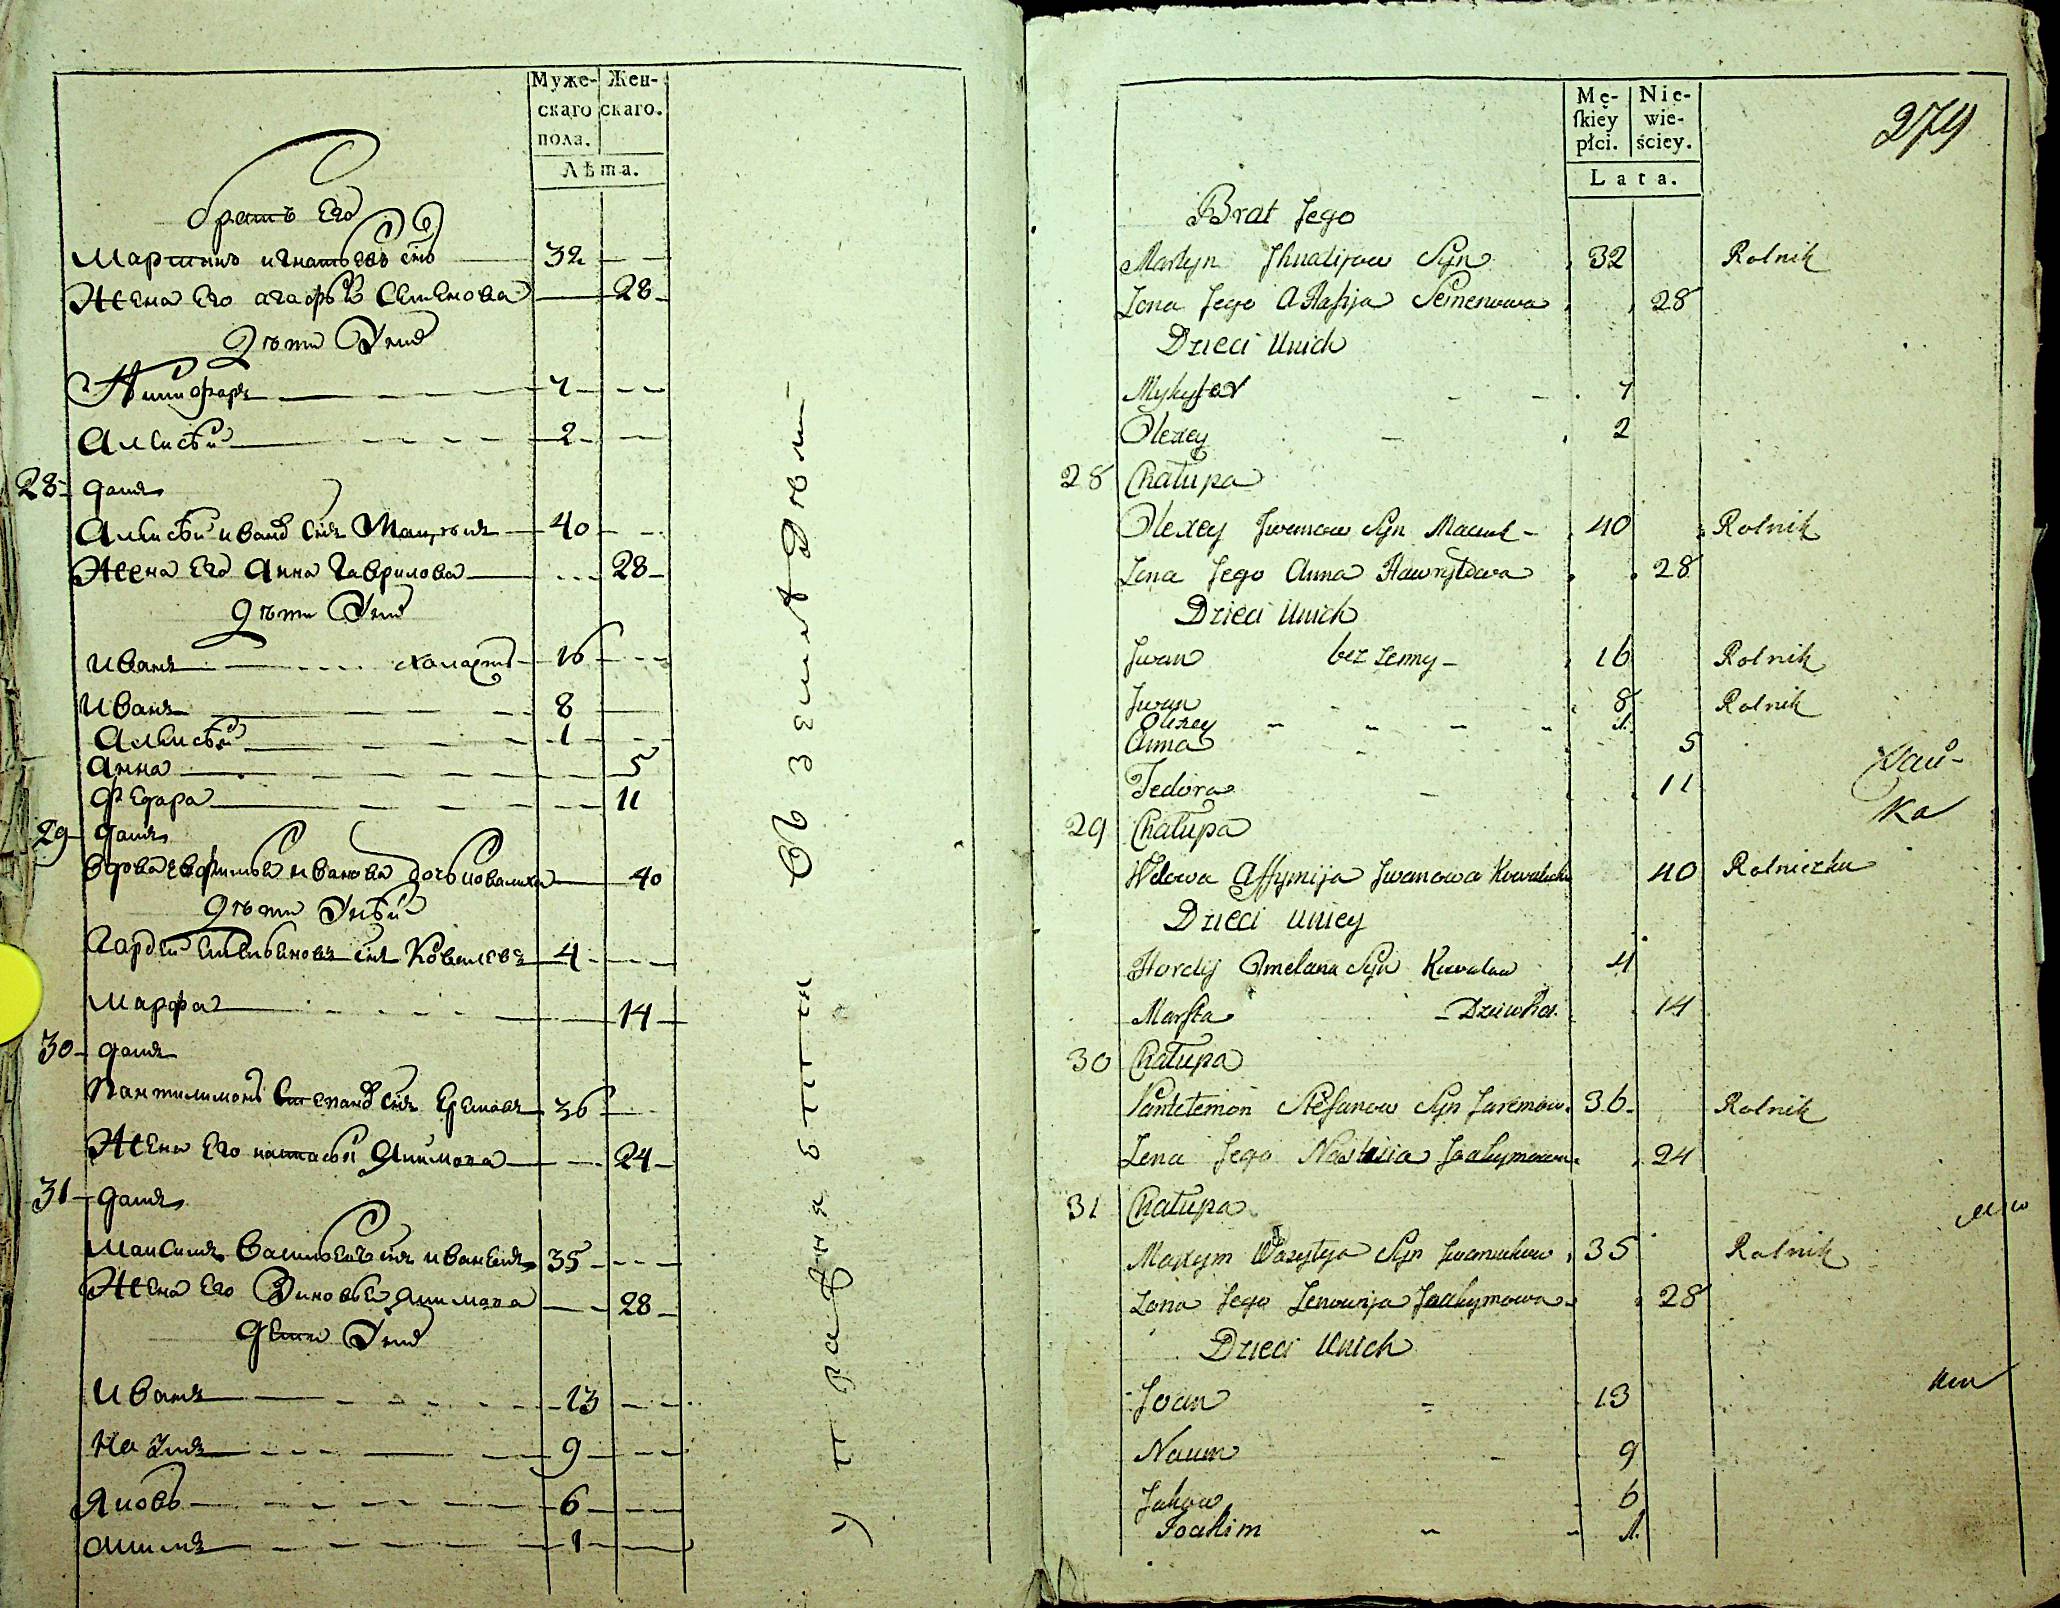 Муже-
скаго
пола.
Жен-
скаго.
Лѣта.
братъ Его
Мартинъ игнатьевъ снъ 32
Жена Его агафья Семенова 28
Дѣти Унихъ
Никифоръ 7
Алексѣй 2
28 домъ
Алексѣй ивановъ снъ 40
Жена Его Анна Гаврилова 28
Дѣти Унихъ
Иванъ 16
Иванъ 8
Алексѣй 1
Анна 5
Федора 11
29 домъ
вдова евфимья иванова дочь 40
Дѣти Уней
Гордей Емельяновъ снъ Ковалевъ 4
Марфа 14
30 домъ
Пантилимонъ Степановъ снъ Еремовъ 36
Жена Его настасья Якимова 24
31 домъ
Максимъ Васильевъ снъ 35
Жена Его Зиновья Якимова 28
дети Унихъ
Иванъ 13
Наумъ 9
Яковъ 6
акимъ 1
Mę-
skiey
płci.
Nie-
wie-
ściey.
Lata.
279
Brat Jego
Martyn Syn 32 Rolnik
Zona Jego Semenowa 28
Dzieci Unich
Mykyfor 7
Olexey 2
28 Chałupa
Olexey Jwanow Syn 40 Rolnik
Zona Jego Anna Hawryłowa 28
Dzieci Unich
Jwan bez zenny 16 Rolnik
Jwan 8 Rolnik
Olexey 1
Anna 5
Fedora 11
29 Chałupa
Wdowa Jwanowa 40 Rolniczka
Dzieci Uniey
Hordij Omelana Syn 4
Marfta Dziewka 14
30 Chałupa
Pantetemon Stefanow Syn Jaremow 36 Rolnik
Zena Jego Nastasia Joakymowa 24
31 Chałupa
Maxym Wasylya Syn 35 Rolnik
Zona Jego Zenowija Joakymowa 28
Dzieci Unich
Jwan 13
Naum 9
Jakow 6
Joakim 1